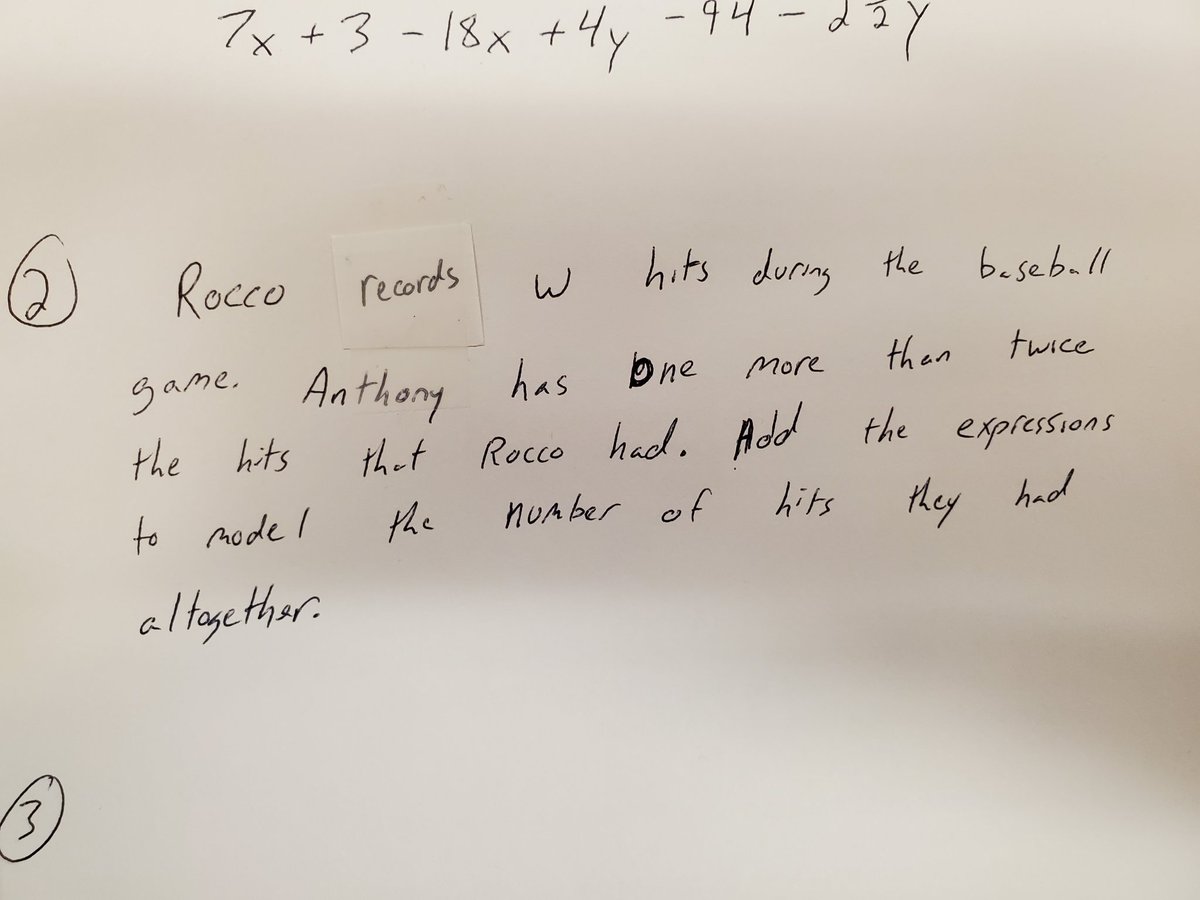 7x + 3 - 18x + 4y - 94 -
② Rocco records w hits during the baseball
game. Anthony has One more than twice
the hits that Rocco had. Add the expressions
to model the number of hits they had
altogether.
③